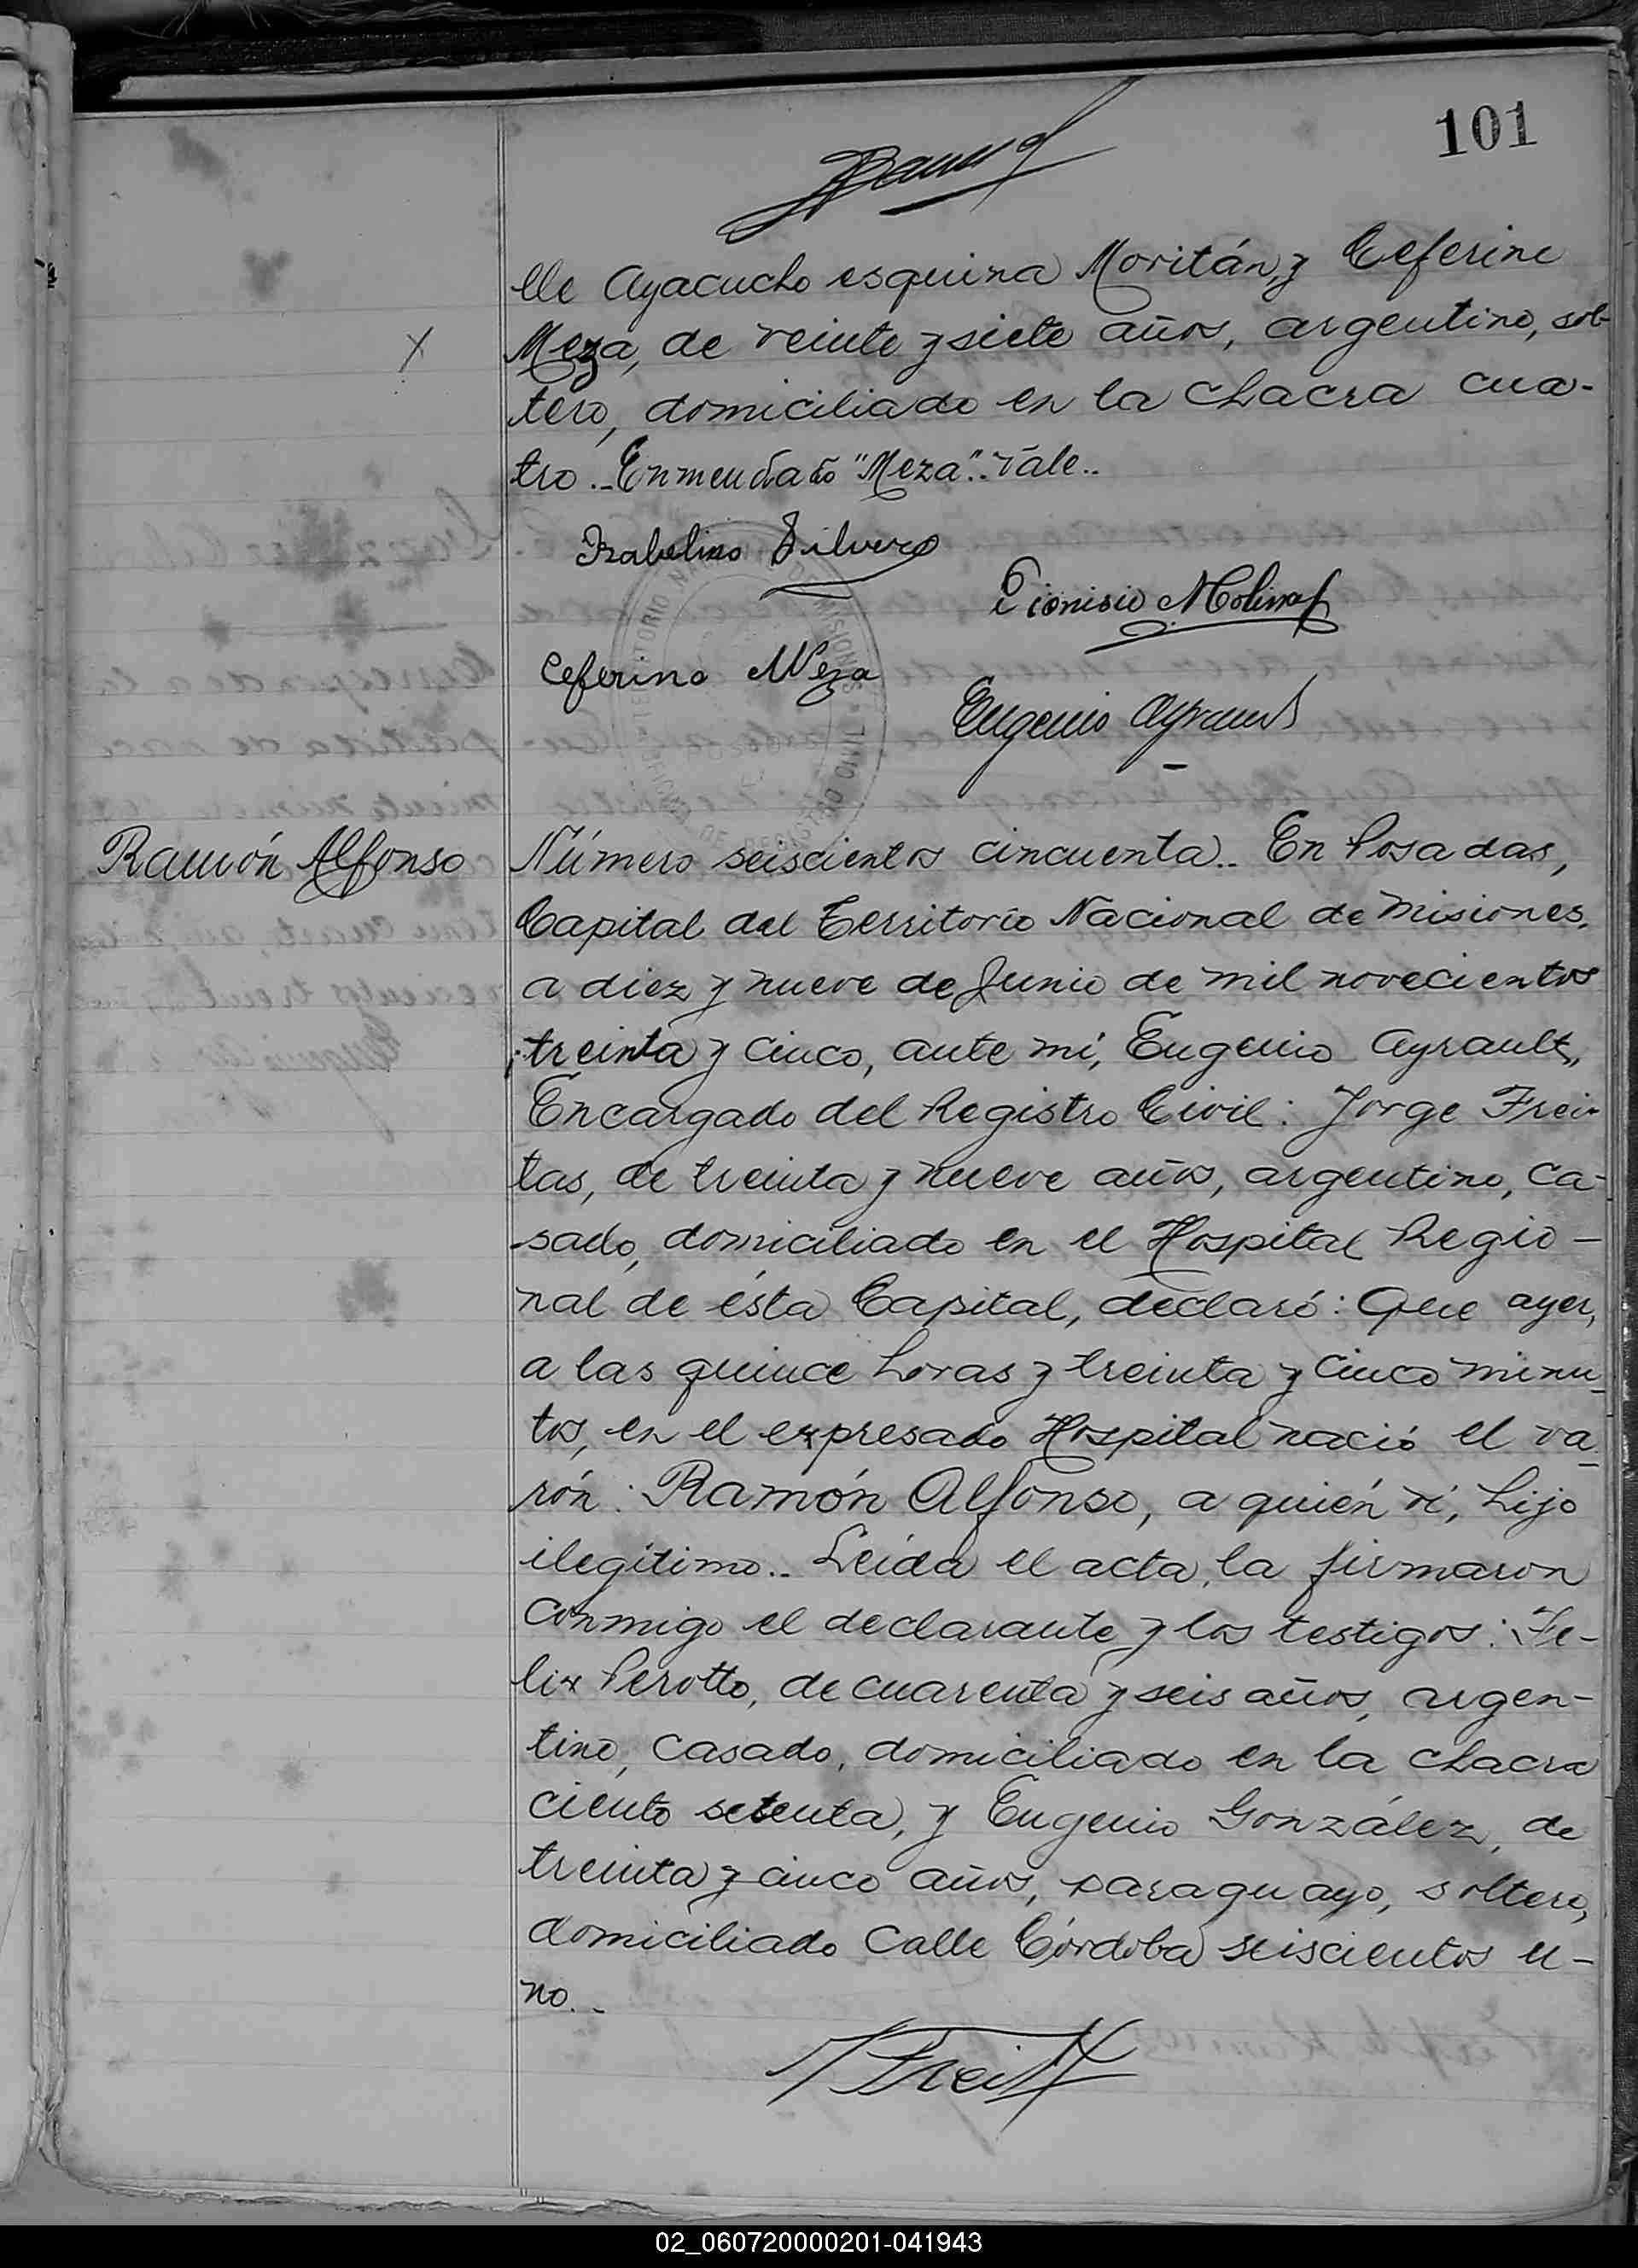 101
lle Ayacucho esquina Moritán, y Ceferino
Meza, de veinte y siete años, argentino, sol-
tero, domiciliado en la chacra cua-
tro.. Enmendado "Meza".. Vale..
Isabelino Silvero
Dionisio Molina
Ceferino Meza
Eugenio Ayrault
Ramón Alfonso
Número seiscientos cincuenta.. En Posadas,
Capital del Territorio Nacional de Misiones,
a diez y nueve de Junio de mil novecientos
treinta y cinco, ante mí, Eugenio Ayrault,
Encargado del Registro Civil: Jorge Frei-
tas, de treinta y nueve años, argentino, ca-
sado, domiciliado en el Hospital Regio-
nal de ésta Capital, declaró: Que ayer,
a las quince horas y treinta y cinco minu-
tos, en el expresado Hospital nació el va-
rón: Ramón Alfonso, a quién ví, hijo
ilegítimo.. Leída el acta, la firmaron
conmigo el declarante y los testigos: Fe-
lix Perotto, de cuarenta y seis años, argen-
tino, casado, domiciliado en la chacra
ciento setenta, y Eugenio González, de
treinta y cinco años, paraguayo, soltero,
domiciliado Calle Córdoba seiscientos u-
no..
02_060720000201-041943